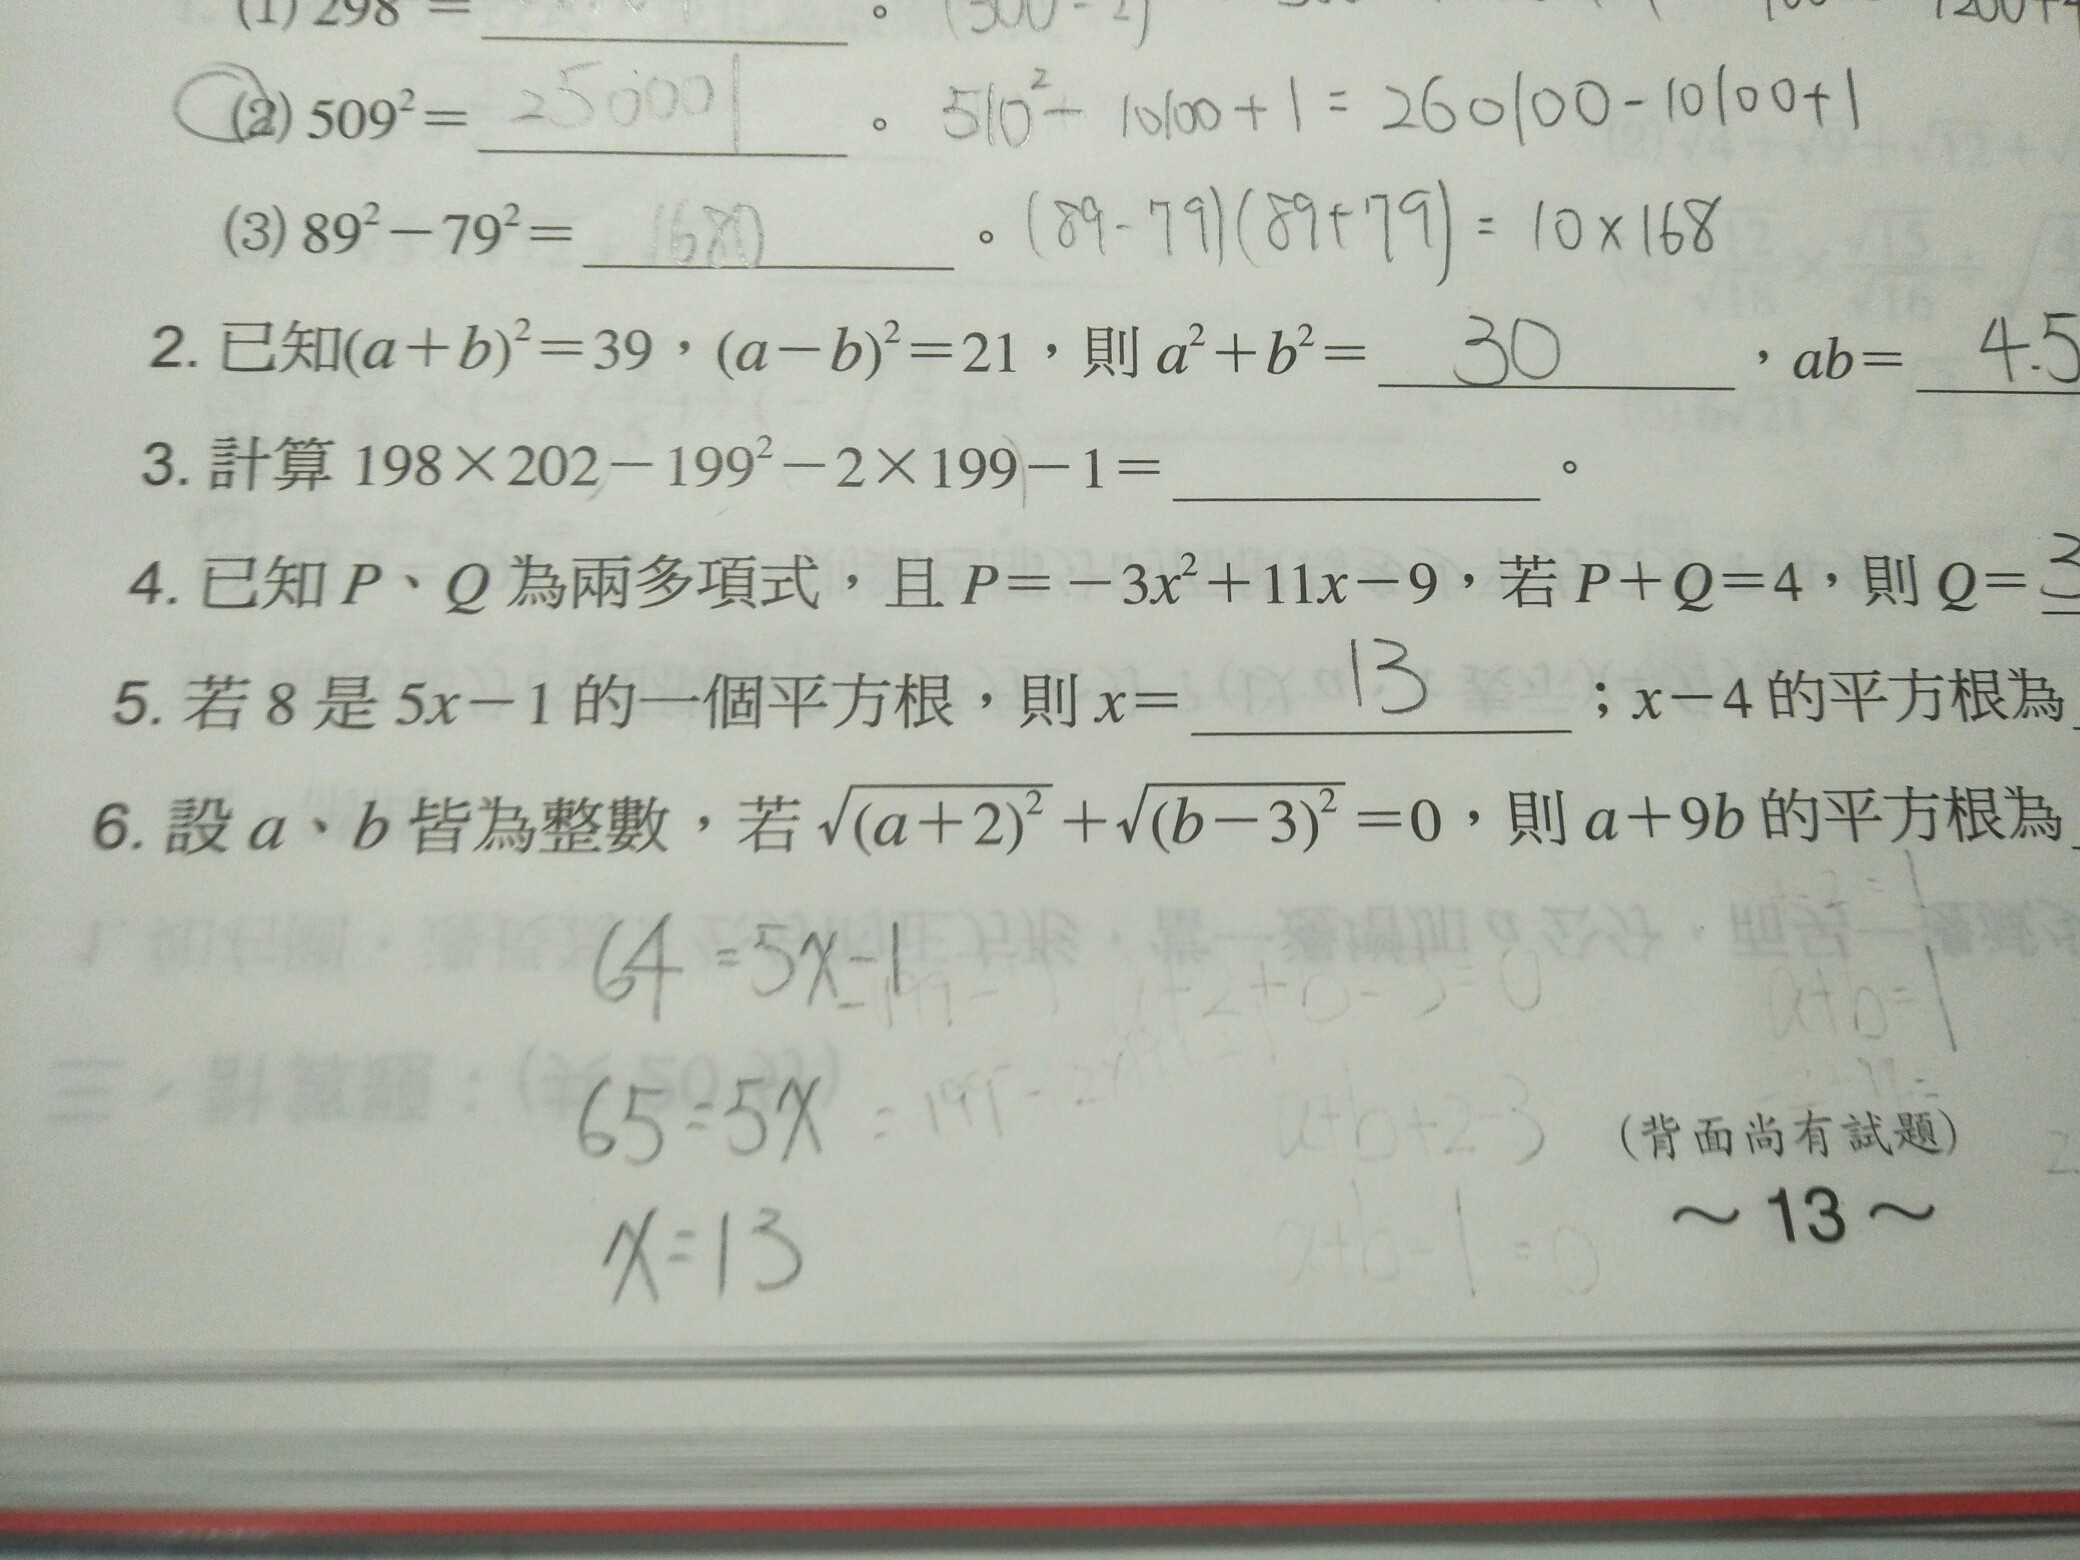 (1) 298² = 。 (300-2)
(2) 509² = 250001 。 510² - 10100 + 1 = 260100 - 10100 + 1
(3) 89² - 79² = 1680 。 (89-79)(89+79) = 10 × 168
2. 已知(a+b)²=39，(a-b)²=21，則 a²+b²= 30 ，ab= 4.5
3. 計算 198×202-199²-2×199-1= 。
4. 已知 P、Q 為兩多項式，且 P=-3x²+11x-9，若 P+Q=4，則 Q= 3
5. 若 8 是 5x-1 的一個平方根，則 x= 13 ；x-4 的平方根為
6. 設 a、b 皆為整數，若 √(a+2)² + √(b-3)² =0，則 a+9b 的平方根為
64 = 5x-1
a+b=1
65 = 5x
a+b+2-3
(背面尚有試題)
x = 13
a+b-1=0
～ 13 ～